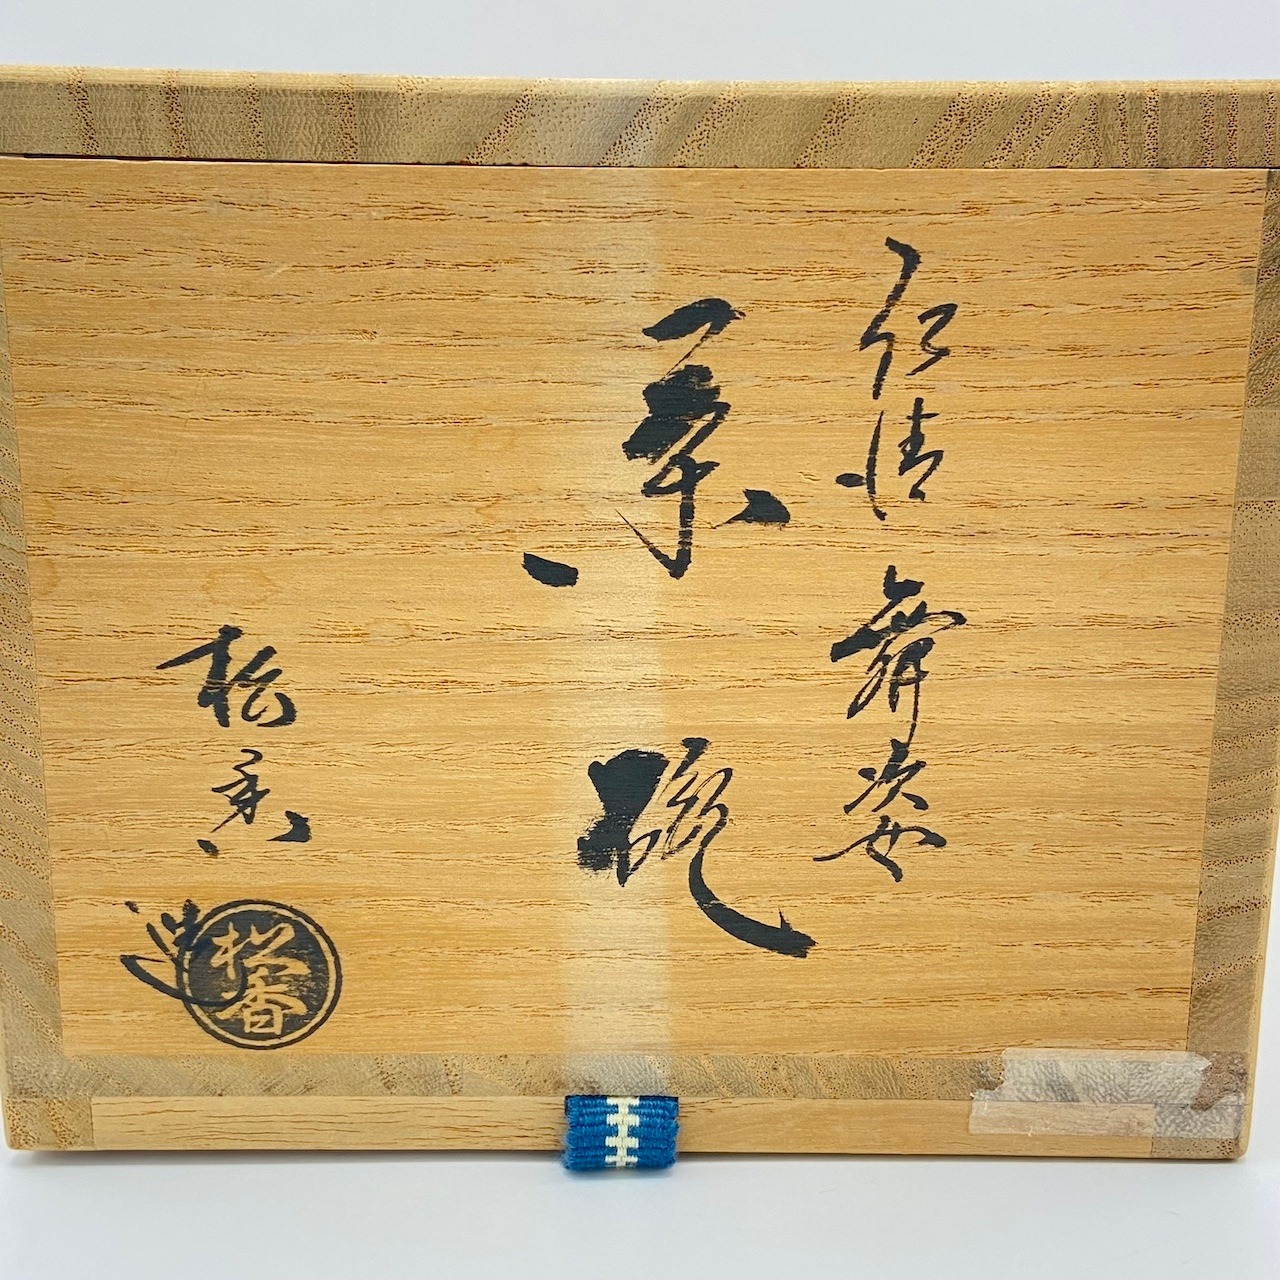 仁清 舞姿
茶碗
松香 造
松香